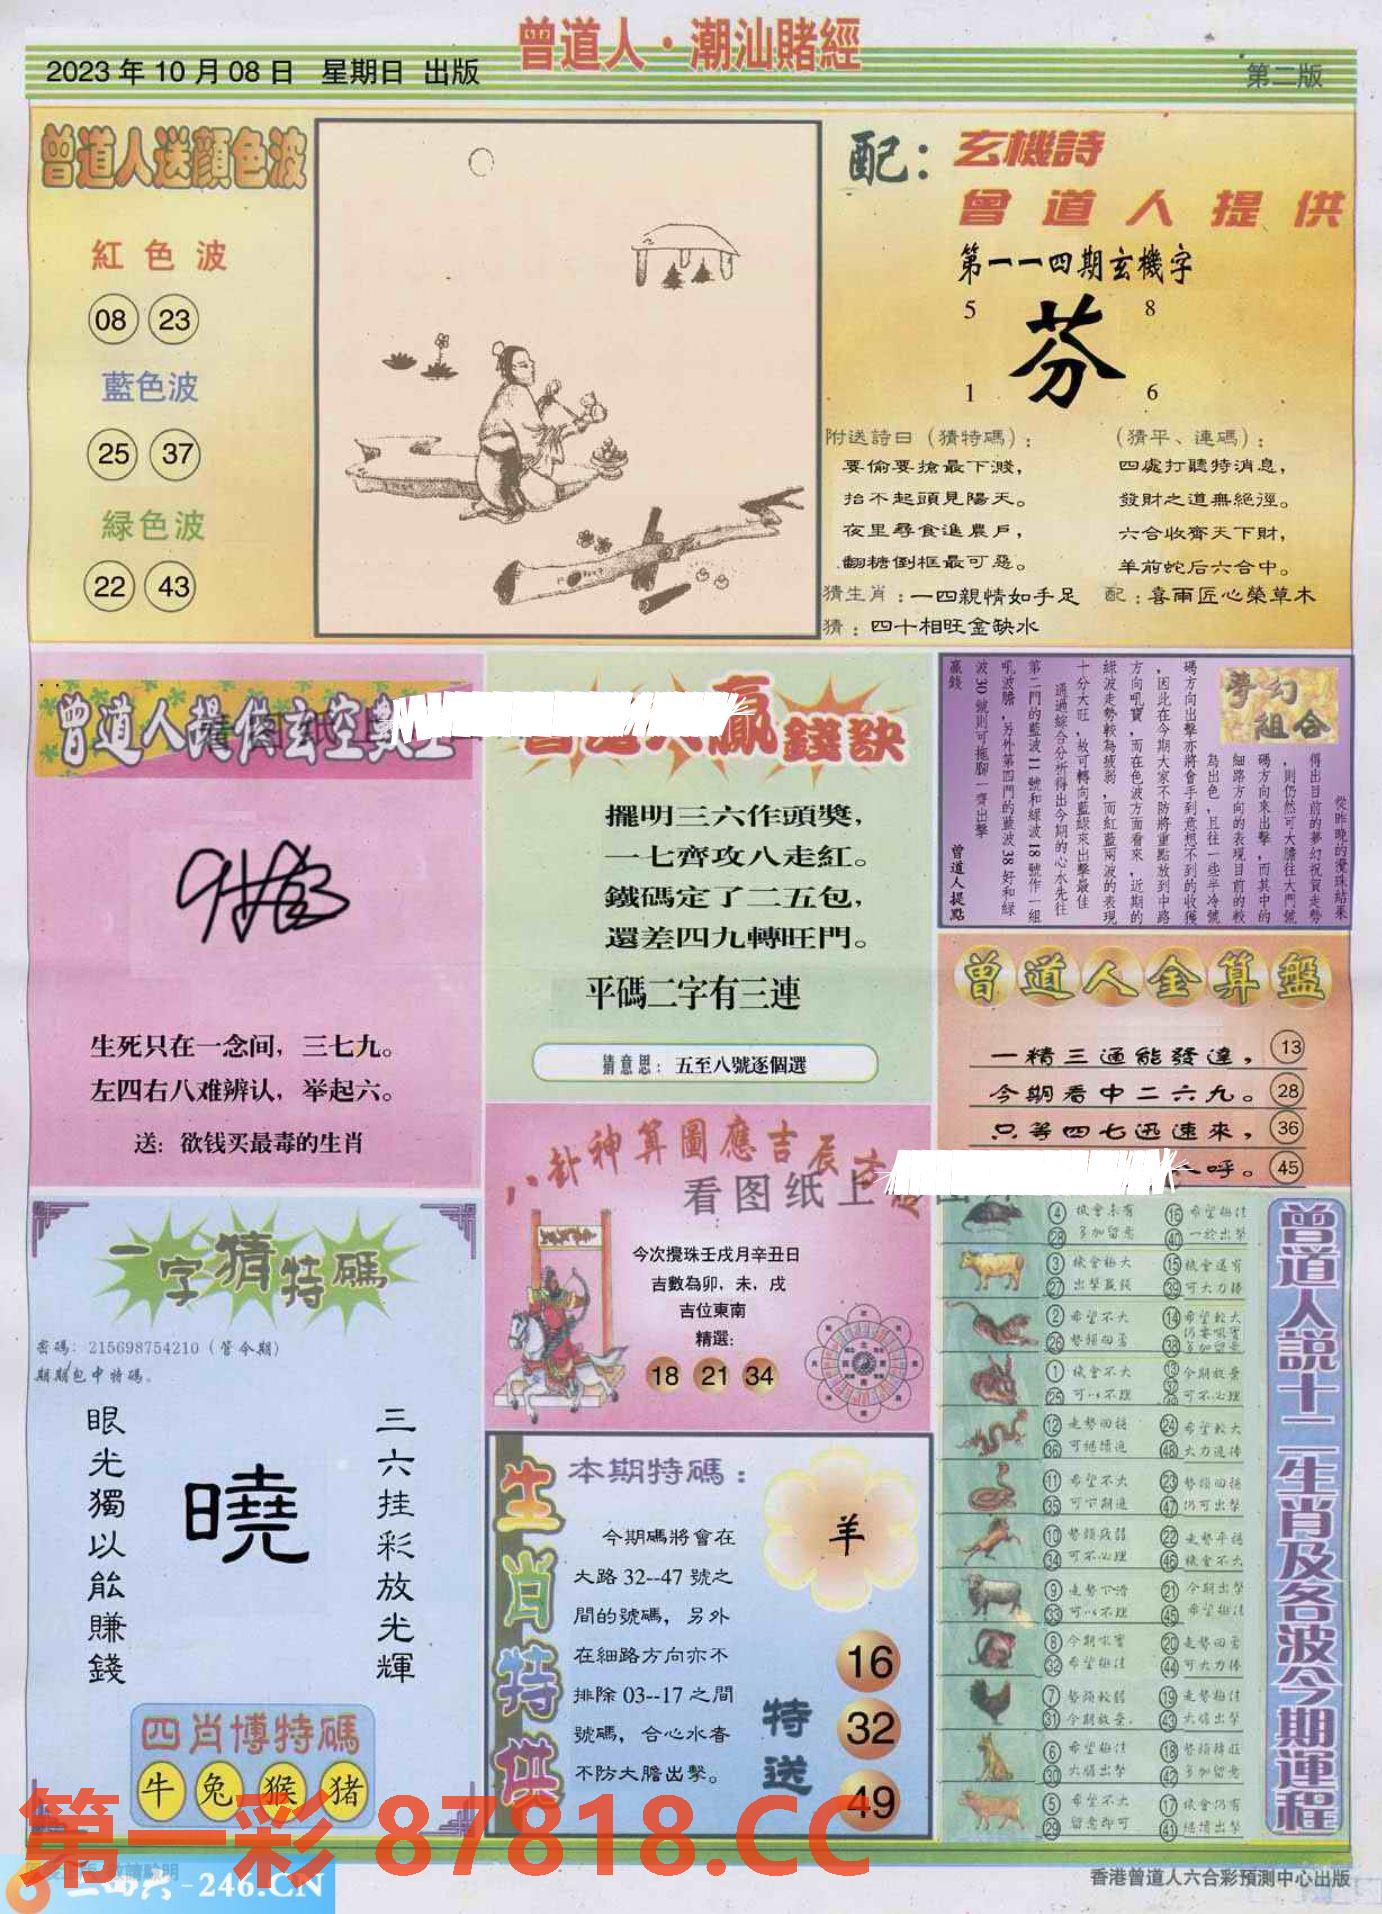 曾道人·潮汕賭經
2023年10月08日 星期日 出版
第二版
曾道人送顔色波
紅色波
08 23
藍色波
25 37
緑色波
22 43
配：玄機詩
曾道人提供
第一一四期玄機字
5 8
芬
1 6
附送詩曰（猜特碼）：
要偷要搶最下濺，
抬不起頭見陽天。
夜里尋食進農戶，
翻糖倒框最可惡。
（猜平、連碼）：
四處打聽特消息，
發財之道無絶徑。
六合收齊天下財，
羊前蛇后六合中。
猜生肖：一四親情如手足 配：喜雨匠心榮草木
猜：四十相旺金缺水
曾道人提供玄空數
生死只在一念间，三七九。
左四右八难辨认，举起六。
送：欲钱买最毒的生肖
贏錢訣
擺明三六作頭獎，
一七齊攻八走紅。
鐵碼定了二五包，
還差四九轉旺門。
平碼二字有三連
猜意思：五至八號逐個選
夢幻組合
從昨晚的攪珠結果
得出目前的夢幻祝賀走勢
，則仍然可大膽往大門號
碼方向來出擊，而其中的
細路方向的表現目前的較
為出色，且往一些半冷號
碼方向出擊亦將會手到意想不到的收獲
，因此在今期大家不防將重點放到中路
方向吼寶，而在色波方面看來，近期的
緑波走勢較為疲弱，而紅藍兩波的表現
十分大旺，故可轉向藍緑來出擊最佳
通過綜合分析得出今期的心水先往
第二門的藍波11號和緑波18號作一組
吼波膽，另外第四門的藍波38好和緑
波30號則可拖腳一齊出擊
贏錢
曾道人提點
曾道人金算盤
一精三通能發達， 13
今期看中二六九。 28
只等四七迅速來， 36
呼。 45
一字猜特碼
密碼：215698754210（管今期）
期期包中特碼。
三六挂彩放光輝
曉
眼光獨以能賺錢
四肖博特碼
牛 兔 猴 猪
八卦神算圖應吉辰
看图纸上
今次攪珠壬戌月辛丑日
吉數為卯，未，戌
吉位東南
精選：
18 21 34
生肖特供
本期特碼：
今期碼將會在
大路32--47號之
間的號碼，另外
在細路方向亦不
排除03--17之間
號碼，合心水者
不防大膽出擊。
羊
特送
16
32
49
曾道人說十二生肖及各波今期運程
4 28 機會未有 多加留意 16 40 希望極佳 一於出擊
3 27 機會極大 出擊贏錢 15 39 機會還有 可大力捧
2 26 希望不大 勢頭回落 14 38 希望較大 仍要吼實 多加留意
1 25 機會不大 可以不理 13 今期放棄 可不必理
12 36 走勢回穩 可繼續追 24 48 希望較大 大力追捧
11 35 希望不大 可下期追 23 47 勢頭回穩 仍可出擊
10 34 勢頭疲弱 可不必理 22 46 走勢平穩 機會不大
9 33 走勢下滑 可以不理 21 45 今期出擊 希望極佳
8 32 今期吼實 希望極佳 20 44 走勢回勇 可大力捧
7 31 勢頭較弱 今期放棄 19 43 走勢極佳 大膽出擊
6 30 希望極佳 大膽出擊 18 42 勢頭轉旺 多加留意
5 29 希望不大 留意即可 17 41 機會仍有 繼續出擊
第一彩 87818.CC
二四六-246.CN
香港曾道人六合彩預測中心出版